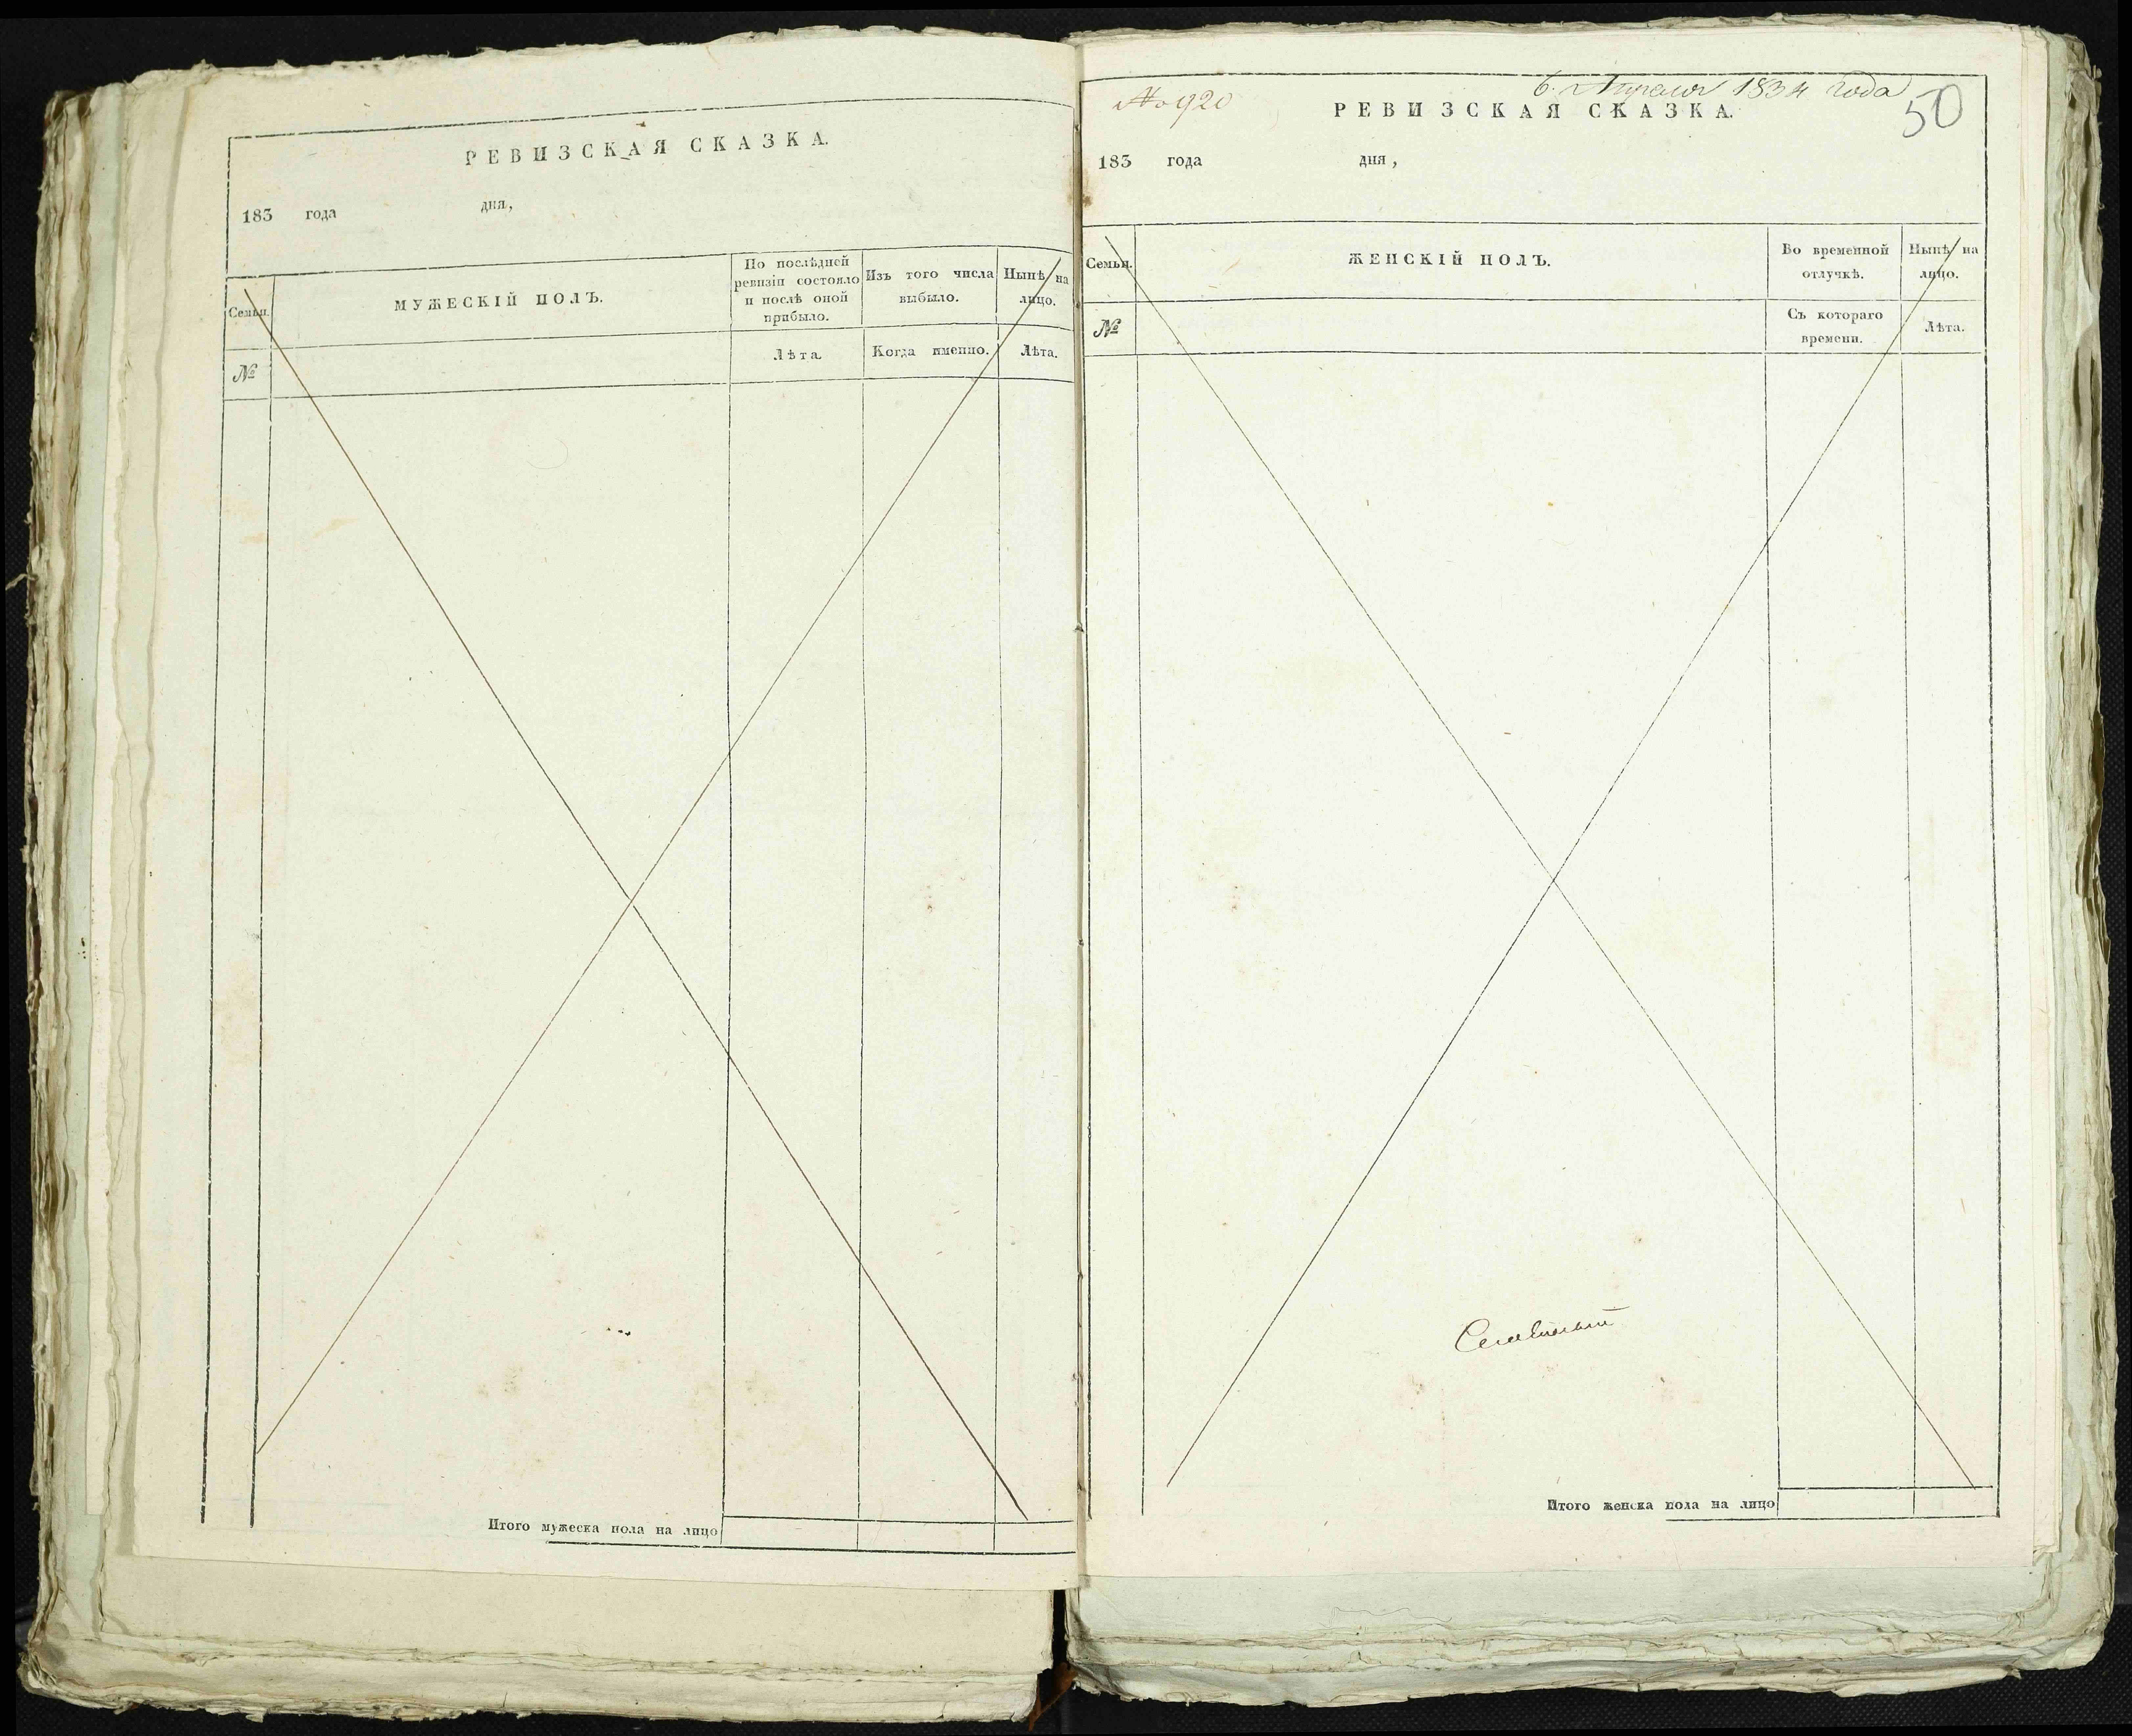 РЕВИЗСКАЯ СКАЗКА.
183 года дня,
Семьи.
МУЖЕСКІЙ ПОЛЪ.
По послѣдней
ревизіи состояло
и послѣ оной
прибыло.
Изъ того числа
выбыло.
Нынѣ на
лицо.
№
Лѣта.
Когда именно.
Лѣта.
Итого мужеска пола на лицо
№ 920
6. Апреля 1834 года
50
РЕВИЗСКАЯ СКАЗКА.
183 года дня,
Семьи.
ЖЕНСКІЙ ПОЛЪ.
Во временной
отлучкѣ.
Нынѣ на
лицо.
№
Съ котораго
времени.
Лѣта.
Итого женска пола на лицо